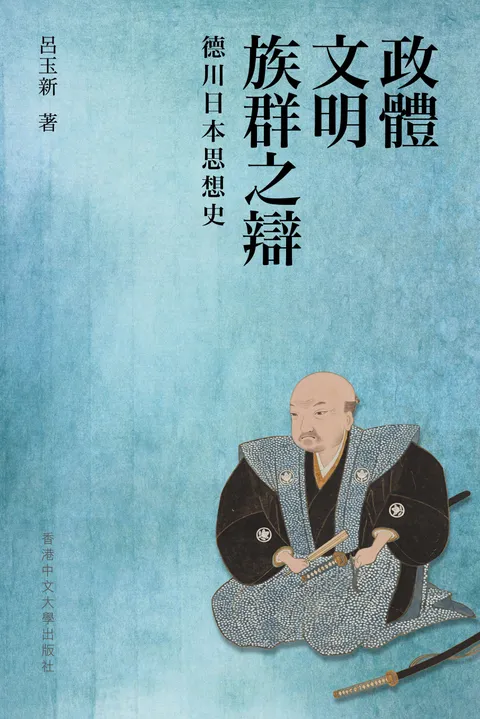 政體
文明
族群之辯
德川日本思想史
呂玉新 著
香港中文大學出版社